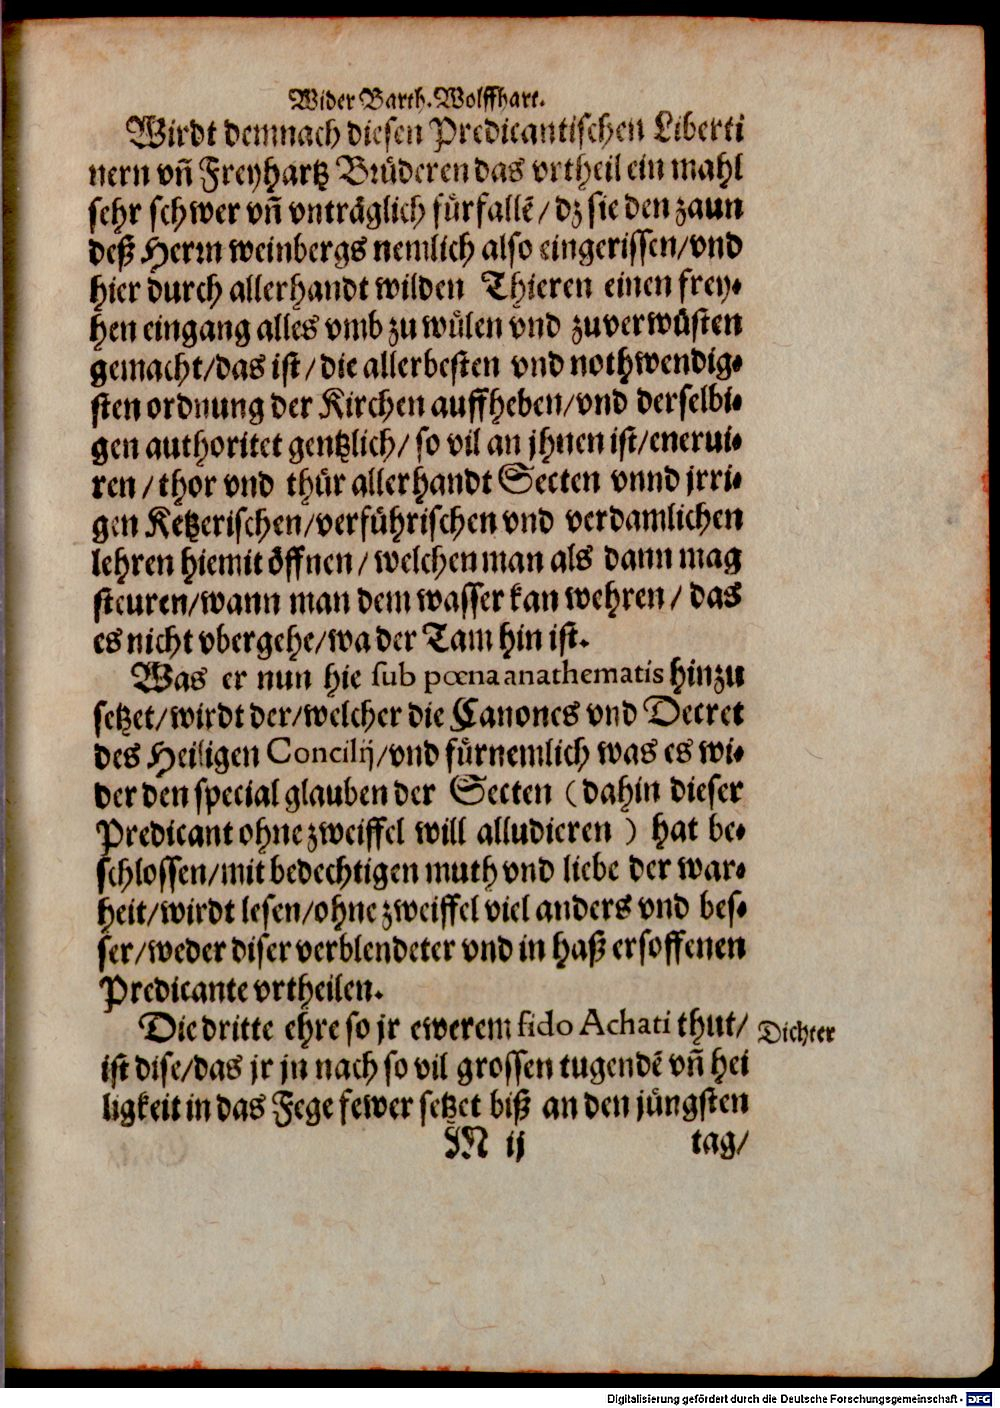 Wider Barth. Wolffhart.
Wirdt demnach diesen Predicantischen Liberti
nern vñ Freyhartz Brüderen das vrtheil ein mahl
sehr schwer vñ vnträglich fürfallẽ / dz sie den zaun
deß Herrn weinbergs nemlich also eingerissen/vnd
hier durch allerhandt wilden Thieren einen frey-
hen eingang alles vmb zu wülen vnd zuverwüsten
gemacht/das ist/die allerbesten vnd nothwendig-
sten ordnung der Kirchen auffheben/vnd derselbi-
gen authoritet gentzlich/ so vil an jhnen ist/enerui-
ren / thor vnd thür allerhandt Secten vnnd jrri-
gen Ketzerischen/verführischen vnd verdamlichen
lehren hiemit öffnen / welchen man als dann mag
steuren/wann man dem wasser kan wehren / das
es nicht vbergehe/wa der Tam hin ist.
Was er nun hie sub pœna anathematis hinzu
setzet/wirdt der/welcher die Canones vnd Decret
des Heiligen Concilij/vnd fürnemlich was es wi-
der den special glauben der Secten (dahin dieser
Predicant ohne zweiffel will alludieren ) hat be-
schlossen/mit bedechtigen muth vnd liebe der war-
heit/wirdt lesen/ohne zweiffel viel anders vnd bes-
ser/weder diser verblendeter vnd in haß ersoffenen
Predicante vrtheilen.
Die dritte ehre so jr ewerem fido Achati thut/
Dichter
ist dise/das jr jn nach so vil grossen tugendẽ vñ hei
ligkeit in das Fege fewer setzet biß an den jüngsten
M ij
tag/
Digitalisierung gefördert durch die Deutsche Forschungsgemeinschaft - DFG